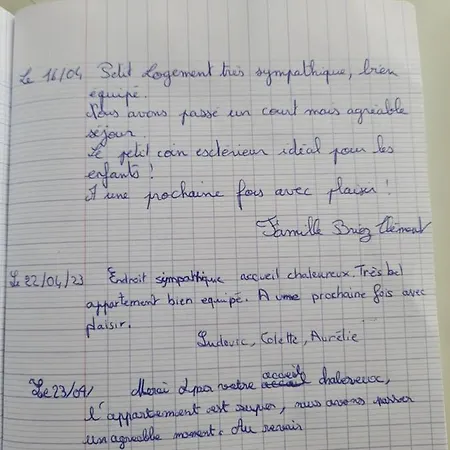 Le 16/04 Petit Logement très sympathique, bien
equipé.
Nous avons passé un court mais agréable
séjour.
Le petit coin exterieur idéal pour les
enfants !
A une prochaine fois avec plaisir !
Famille Briez Clément
Le 22/04/23 Endroit sympathique accueil chaleureux. Très bel
appartement bien equipé. A une prochaine fois avec
plaisir.
Ludovic, Colette, Aurélie
Le 23/04/ Merci pour votre accueil chaleureux,
l'appartement est super, nous avons passer
un agreable moment. Au revoir